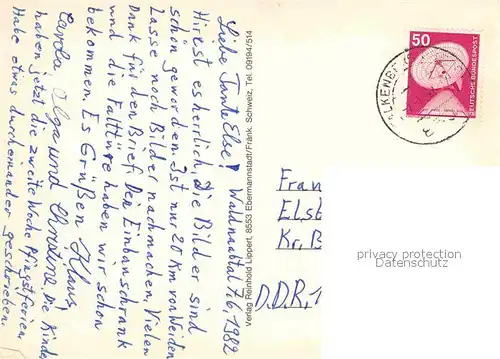 Waldnaabtal 7.6.1982
Liebe Tante Else!
Hir est es herrlich, die Bilder sind
schön geworden. Ist nur 20 km von Weiden
Lasse noch Bilder nachmachen, Vielen
Dank für den Brief. Den Einbauschrank
und die Falttüre haben wir schon
bekommen. Es Grüßen Klaus,
Carola, Olga und Christine. Die Kinder
haben jetzt die zweite Woche Pfingstferien
Habe etwas durcheinander geschrieben.
Verlag Reinhold Lippert, 8553 Ebermannstadt/Fränk. Schweiz, Tel. 09194/514
50
DEUTSCHE BUNDESPOST
Frau
Elst
Kr. B
D.D.R. 1
privacy protection
Datenschutz